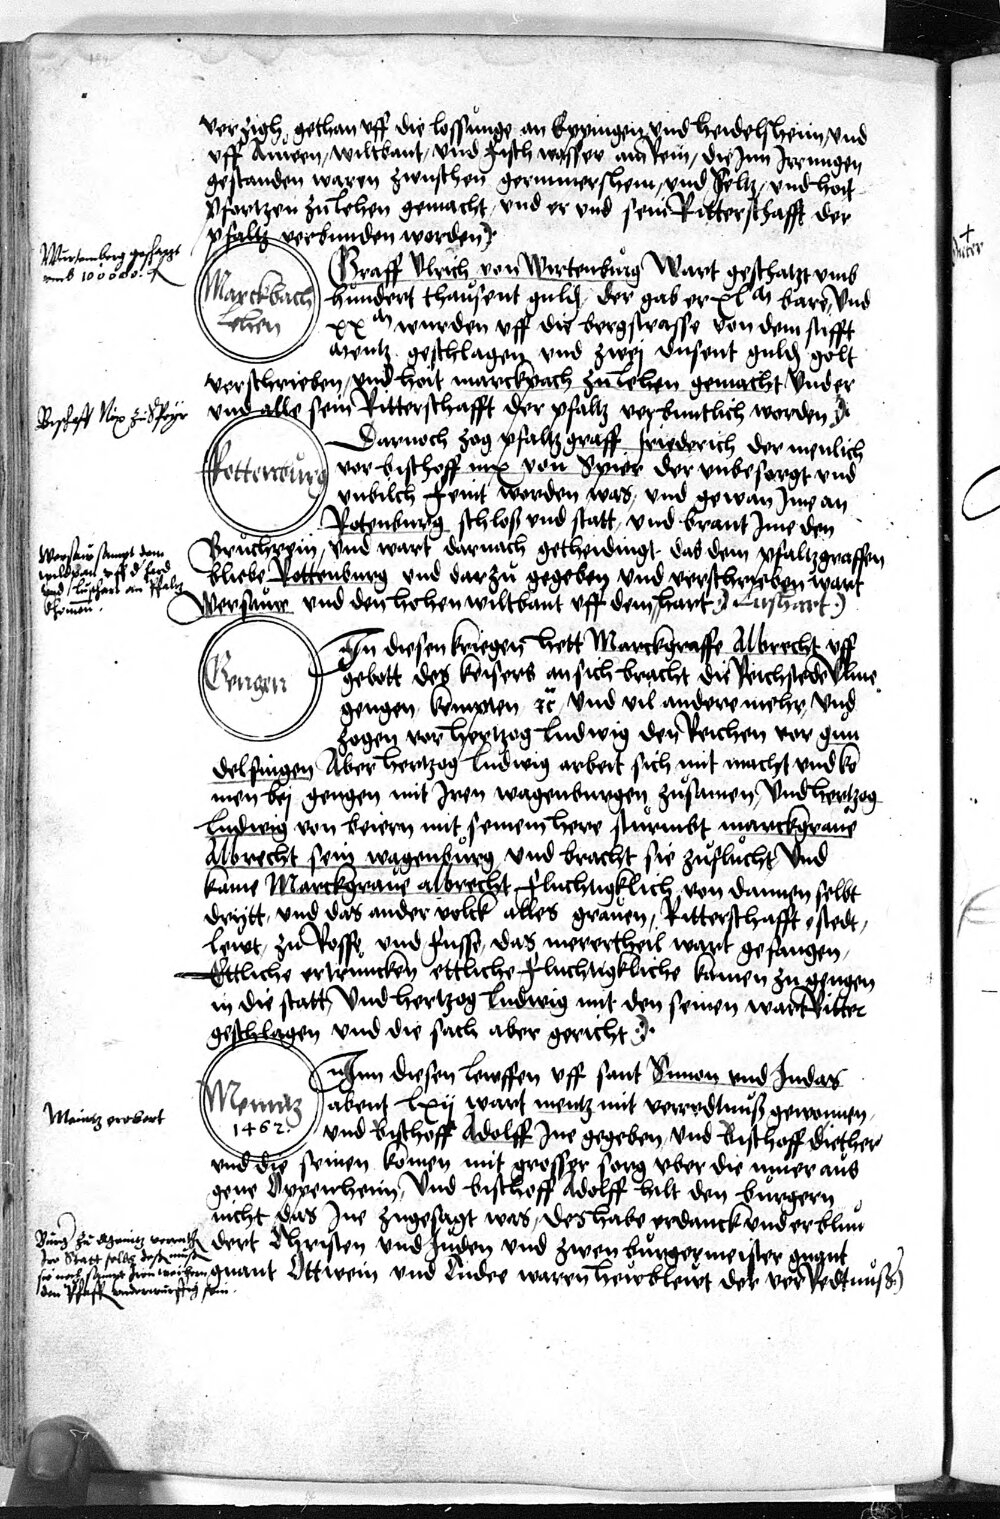 verzigh gethan uff die lossunge an Eppingen und heidelsheim, und
uff Auwen, wiltbant, und fisch wasser am Rein, die Inn Irrungen
gestanden waren zwuschen germmersheim, und Seltz, und hait
Pfortzen zu lehen gemacht, und er und sein Ritterschafft der
pfaltz verbunden worden
Wirtemberg geschetzt
umb 100000. f
Marckbach
Lehen
Graff Ulrich von Wirtenburg Wart geschatzt umb
hundert thausent guld, der gab er xl m bare, Und
xx m wurden uff die bergstrasse von dem stifft
mentz geschlagen und zwei dusent guld golt
verschrieben, und hait marckpach zu lehen gemacht Und er
und alle sein Ritterschafft der pfaltz verbuntlich worden
Bischoff Nix zu Speyr
Rottenburg
Darnoch zog pfaltzgraff friederich der menlich
vor bischoff nix von Spier der unbesorgt und
unbilch feint worden was, und gewan Ime an
Rotenburg schloß und statt, und brant Ime den
Bruchrein, Und wart darnach getheidingt das dem pfaltzgraffen
bliebe Rottenburg und darzu gegeben und verschrieben wart
Wersauw und den hohen wiltbant uff dem hart Lushart
Wersaw sampt dem
wildban uff d hard
und Lushart an Pfaltz
khomen.
Gengen
In diesen kriegen hett Marckgraffe Albrecht uff
gebott des keisers an sich bracht die Reichstede Ulme
gengen kempten ec, Und vil andere mehr, Und
zogen vor hertzog Ludwig den Reichen vor gun
delfingen Aber hertzog Ludwig arbeit sich mit macht und ko
men bej gengen mit Iren wagenburgen zusamen, Und hertzog
Ludwig von beiern mit seinem here sturmbt marckgrave
Albrecht sein wagenburg und bracht sie zuflucht Und
kame Marckgrave albrecht fluchtigklich von dannen selbt
dryt, und das ander volck alles graven, Ritterschafft stedt,
lewt, zu Rosse und fusse, das merertheil wart gefangen,
Ettliche ertruncken ettliche fluchtigkliche kamen zu gengen
in die statt, Und hertzog Ludwig mit den seinen wart Ritter
geschlagen und die sach aber gericht
Mentz
1462.
Inn diesen lewffen uff sant Simon und Judas
abent lxij wart mentz mit verredtnuß gewonnen,
und Bischoff Adolff Ine gegeben, und Bischoff diether
und die seinen komen mit grosser sorg uber die muer aus
gene Oppenheim, Und bischoff Adolff hilt den burgern
nicht das Ine zugesagt was, deshabe verdanck und er blun
dert Christen und Juden und zwen burgermeister gnant
gnant Ottwein und Dudee waren hewbtlewt der verRedtnuß
Maintz erobert